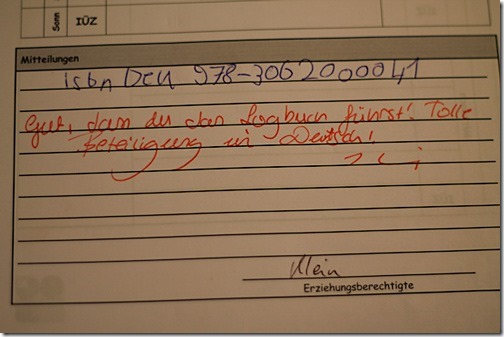 Sonn
IÜZ
Mitteilungen
isbn Den 978-3062000041
Gut, dass du das Logbuch führst! Tolle
Beteiligung in Deutsch!
Klein
Erziehungsberechtigte